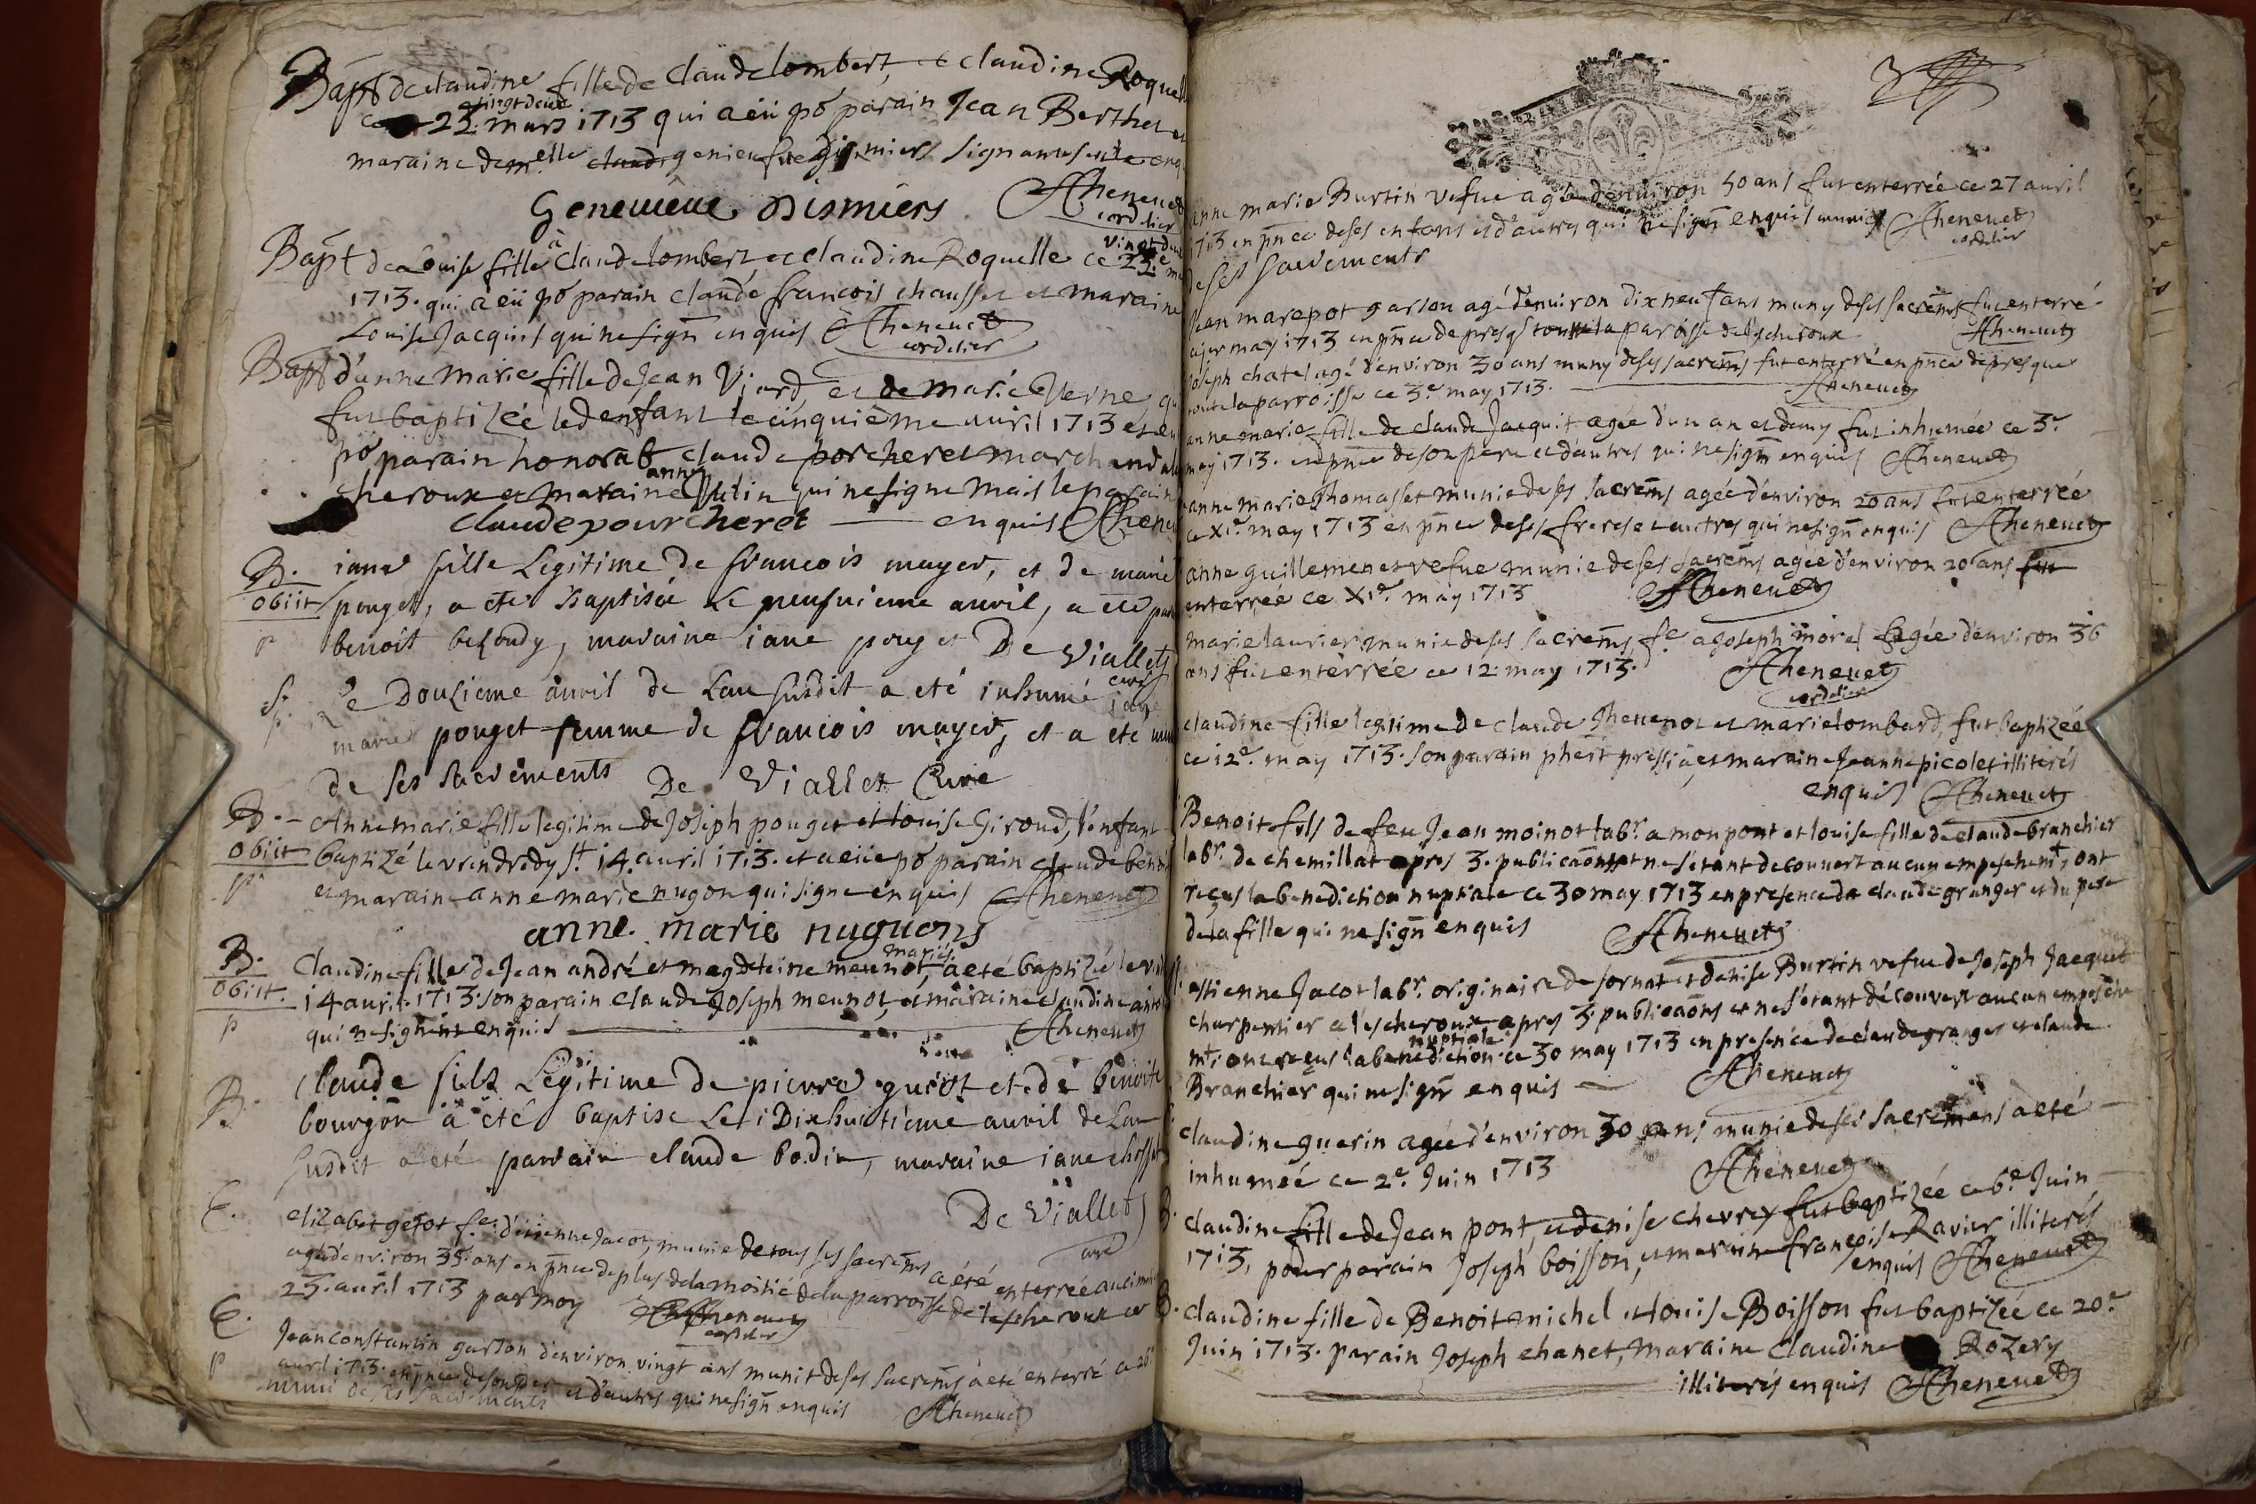 Bapt de claudine fille de Claude lombert, et claudine Roquelle
vingt deux
ce 22. mars 1713 qui a eü po parain Jean Berthet et
maraine dem.elle geneieufue Dismiers signanus enq
Geneuiéue Dismiers Theneuet
cordelier
Bapt de Loüise fille à Claude lombert et claudine Roquelle ce 22.e
1713. qui a eü po parain claude francois chausset et maraine
Louise Jacquis qui ne sign enquis Theneuet
cordelier
Bapt d'anne Marie fille de Jean Viard et de marie Verne
fut baptizée led enfant le cinquième auril 1713 et eu
po parain honorab claude porcheret marchand
cheroux et maraine anne Putin qui ne signe mais le parain
claude pourcheret enquis Theneuet
B. iane fille Legitime de francois mayer, et de marie
obiit pouget, a eté Baptisée Le neufvieme auril, a eté
p benoit beloudy, maraine iane pouget De Viallet
curé
Le Douzieme auril de Lan susdit a eté inhumé
marie pouget femme de francois mayer, et a eté munie
de ses sacrements De Viallet Curé
B. Anne marie fille legitime de Joseph pouget et loüise Giroud, l'enfant
obiit baptizé le vendredy St. 14. auril 1713. et a eü po parain claude benoit
p et maraine anne marie nugon qui signe enquis Theneuet
anne. marie nuguons
B. Claudine fille de Jean andré et magdeleine meunot, mariés a eté baptizé le
obiit. 14 auril 1713. son parain claude Joseph meunot, et maraine claudine
p qui ne signent enquis Theneuet
B. Claude fils Legitime de pierre guiot et de benoite
bourgon a été baptise Le Dixhuitieme auril de Lan
susdit a eté parrain claude bodin, maraine iane
De Viallet
curé
E. elizabet gefot fe. d'etienne Jacot, munie de tous ses sacrems a été enterrée au
agée d'environ 35. ans en pnce de plus de la moitié de la parroisse de lescheroux ce
23. auril 1713 par moy Theneuet
cordelier
E. Jean constantin garson d'environ vingt ans munit de ses sacrems a eté enterré ce 26
p auril 1713. en pnce de son pere et d'autres qui ne sign enquis Theneuet
muni de ses sacrements
3
anne marie Burtin vefue agée d'environ 50 ans fut enterrée ce 27 auril
1713 en pnce de ses enfans et d'autres qui ne sign enquis munie Theneuet
cordelier
de ses sacrements
Jean marepot garson agé d'enuiron dix neuf ans muny de ses sacrems fut enterré
may 1713 en pnce de presq toutte la paroisse de lescheroux Theneuet
Joseph chatel agé d'environ 30 ans muny de ses sacrems fut enterré en pnce de presque
toute la parroisse ce 3.e may 1713. Theneuet
anne marie fille de claude Jacquit agée d'un an et demy fut inhumée ce 3.e
may 1713. en pnce de son pere et d'autres qui ne sign enquis Theneuet
anne marie Thomasset munie de ses sacrems agée d'environ 20 ans fut enterrée
ce XI.e may 1713 en pnce de ses freres et autres qui ne sign enquis Theneuet
anne guillemenet vefue munie de ses sacrems agée d'environ 20 ans fut
enterrée ce XI.e may 1713 Theneuet
marie laurier munie de ses sacrems, fe. a Joseph morel agée d'environ 36
ans fut enterrée ce 12 may 1713. Theneuet
cordelier
claudine fille legitime de claude Theuenot et marie lombard, fut baptizée
ce 12.e may 1713. son parain et maraine Jeanne picolet illiterés
enquis Theneuet
Benoit fils de feu Jean moinot labr. a monpont et loüise fille de claude branchier
labr. de chemillat apres 3. publicaons et ne s'étant decouvert aucun empeschemt, ont
reçus la benediction nuptiale ce 30 may 1713 en presence de claude granger et du pere
de la fille qui ne sign enquis Theneuet
estienne Jacot labr. originaire de sornat et denise Burtin vefue de Joseph Jacquet
charpentier a lescheroux apres 3. publicaons et ne s'étant découvert aucun empesche
mt, ont reçus la benediction nuptiale ce 30 may 1713 en presence de claude granger et claude
Branchier qui ne sign enquis Theneuet
claudine guerin agée d'environ 30 ans munie de ses sacremens a eté
inhumeé ce 2.e Juin 1713 Theneuet
B. claudine fille de Jean pont, et denise chevrey fut baptizée ce 6.e Juin
1713, pour parain Joseph boisson, et maraine françoise Ravier illiterés
enquis Theneuet
B. claudine fille de Benoit michel et loüise Boisson fut baptizée ce 20.e
Juin 1713. parain Joseph chanet, maraine claudine Rozery
illiterés enquis Theneuet